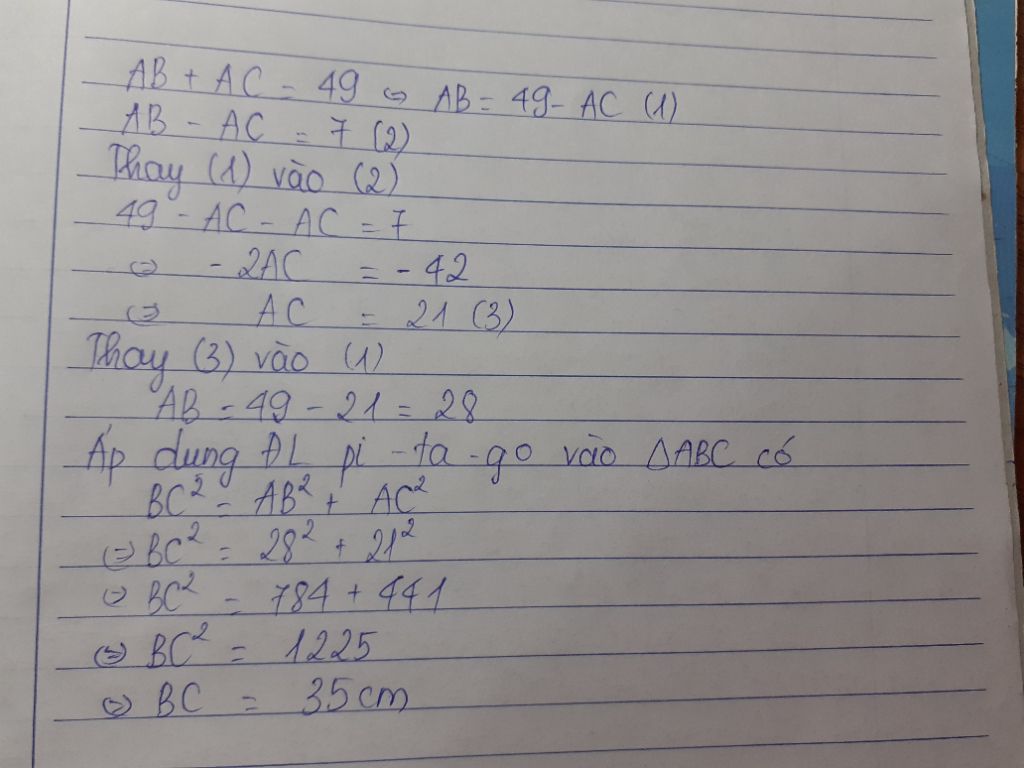 AB + AC = 49 ⇔ AB = 49 - AC (1)
AB - AC = 7 (2)
Thay (1) vào (2)
49 - AC - AC = 7
⇔ -2AC = -42
⇔ AC = 21 (3)
Thay (3) vào (1)
AB = 49 - 21 = 28
Áp dung ĐL pi-ta-go vào ΔABC có
BC² = AB² + AC²
⇔ BC² = 28² + 21²
⇔ BC² = 784 + 441
⇔ BC² = 1225
⇔ BC = 35cm